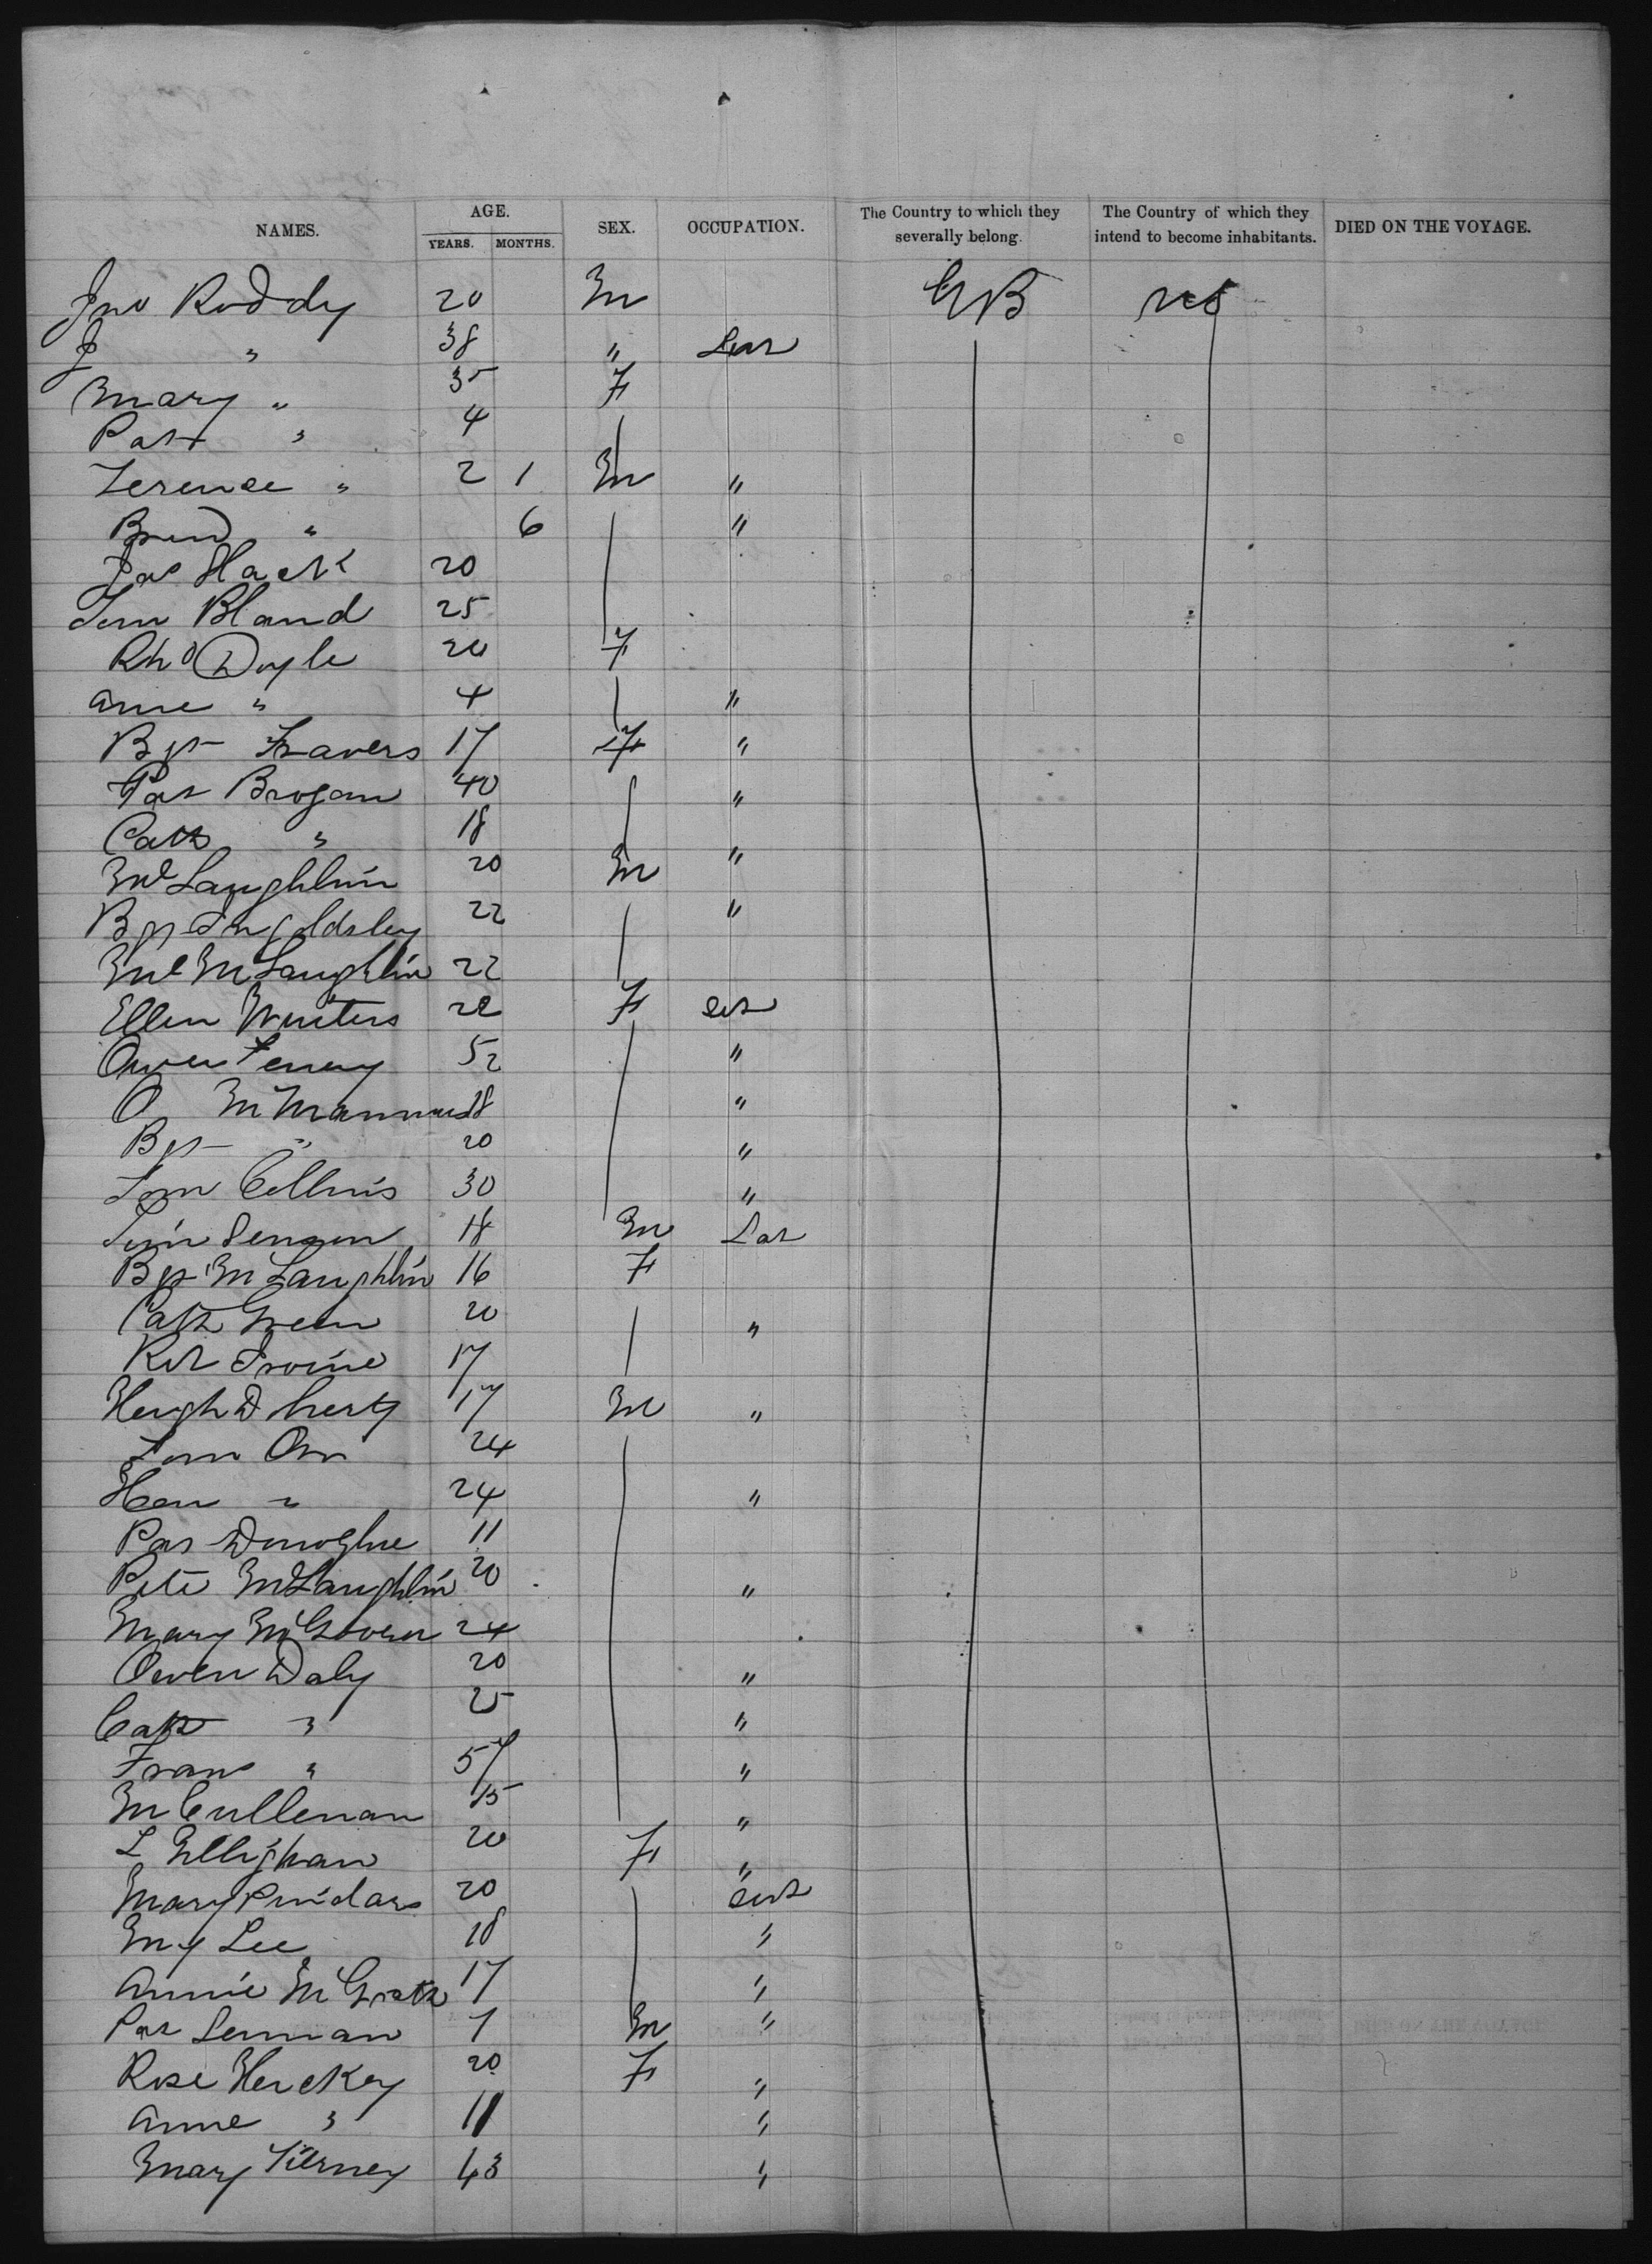 NAMES. AGE. YEARS. MONTHS. SEX. OCCUPATION. The Country to which they severally belong. The Country of which they intend to become inhabitants. DIED ON THE VOYAGE.
Jno Roddy 20 M GB US
J " 38 " Lar
Mary " 35 F
Pat " 4
Terence " 2 1 M "
" 6 "
Jas Hack 20
Tom Bland 25
Doyle 20 F
Anne " 4 "
Bgt Travers 17 F "
Pat Brogan 40 "
Cath " 18
McLaughlin 20 M "
Bgt Ingoldsby 22 "
Ml McLaughlin 22
Ellen Winters 22 F
Owen Feney 52 "
O McMannus 18 "
Bgt " 20 "
Tom Collins 30 "
Tim 18 M Lar
Bgt McLaughlin 16 F
Cath Green 20 "
Irvine 17
Hugh Dherty 17 M "
Tom Orr 24
" 24 "
Pat Donoghue 11
Pete McLaughlin 20 "
Mary McGovern 24
Owen Daly 20 "
Cath " 25 "
Frans " 57 "
McCullenan 15 "
L 20 F "
Mary Pindars 20
My Lee 18 "
Annie McGrath 17 "
Pat Lennan 7 M "
Rose Heuckey 20 F "
Anne " 11 "
Mary Tierney 43 "